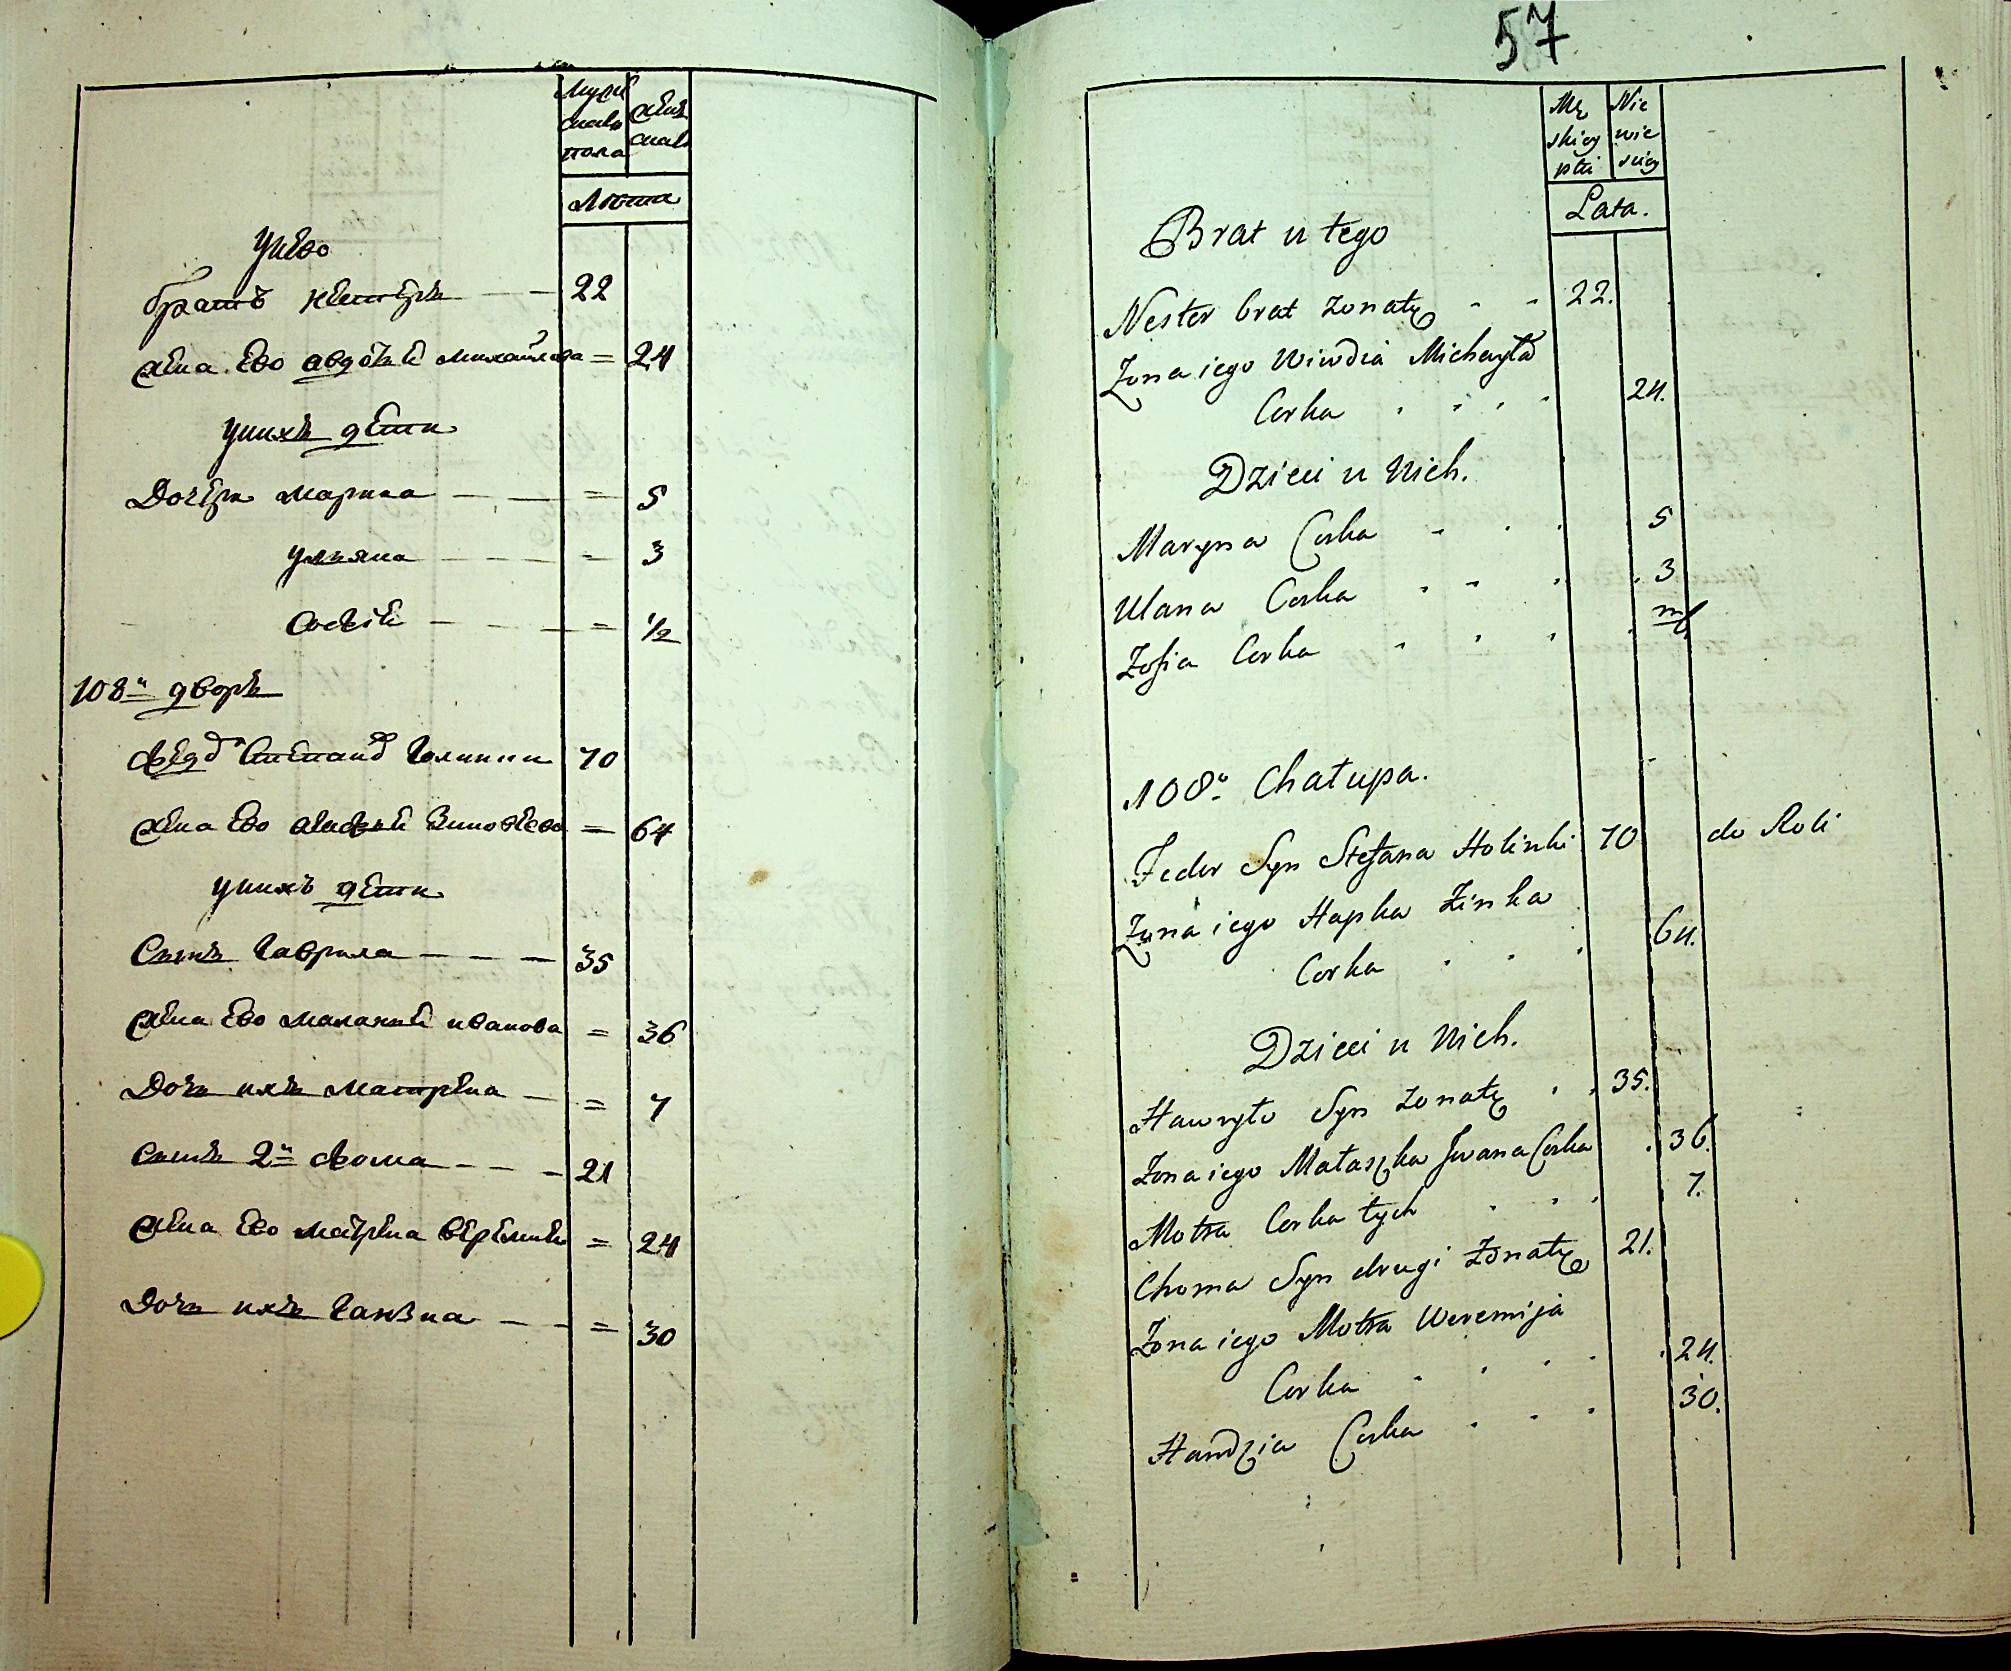 Муже
ска
пола
Жен
ска
Лѣта
У нево
братъ нестеръ 22
жена ево авдотья михайлова = 24
у нихъ дети
Дочери марина = 5
ульяна = 3
Софія = 1/2
108й дворъ
Ѳедоръ Степановъ Голинки 70
жена ево агафья Зиновьева = 64
у нихъ дети
Сынъ Гаврила 35
жена ево маланья иванова = 36
Дочь ихъ матрена = 7
Сынъ 2й Ѳома 21
жена ево матрена еремеева = 24
Дочь ихъ Ганзна = 30
57
Mę
skiey
płci
Nie
wie
sciey
Lata.
Brat u tego
Nester brat żonaty 22.
Żona iego Wiwdia Michayła
Corka 24.
Dzieci u Nich.
Maryna Corka 5
Ulana Corka 3
Zofia Corka m 6
108a Chałupa.
Fedor Syn Stefana Holinki 70 do Roli
Żona iego Hapka Zinka
Corka 64.
Dzieci u Nich.
Hawryło Syn żonaty 35.
Żona iego Małaszka Jwana Corka 36.
Motra Corka tych 7.
Choma Syn drugi Żonaty 21.
Żona iego Motra Weremija
Corka 24.
Handzia Corka 30.